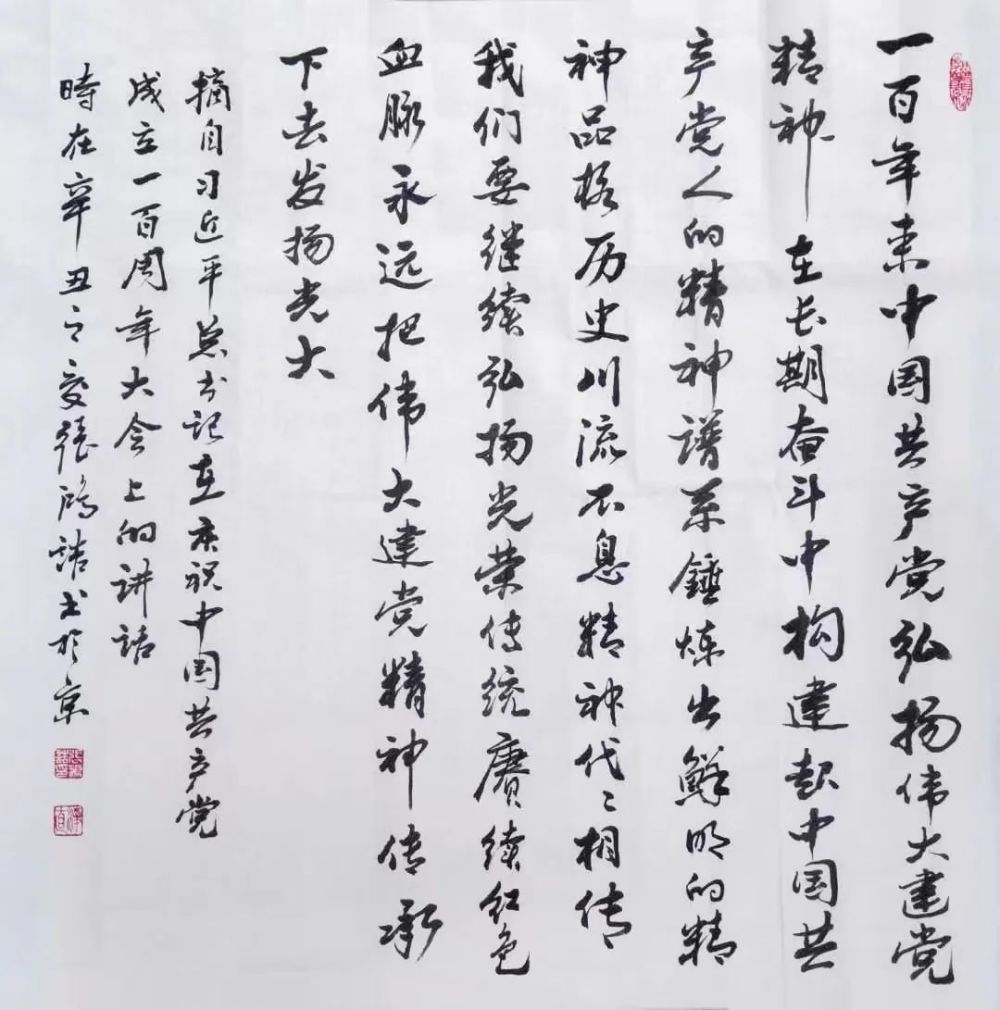 一百年来中国共产党弘扬伟大建党
精神在长期奋斗中构建起中国共
产党人的精神谱系锤炼出鲜明的精
神品格历史川流不息精神代代相传
我们要继续弘扬光荣传统赓续红色
血脉永远把伟大建党精神传承
下去发扬光大
摘自习近平总书记在庆祝中国共产党
成立一百周年大会上的讲话
時在辛丑之夏張鴻喆书於京